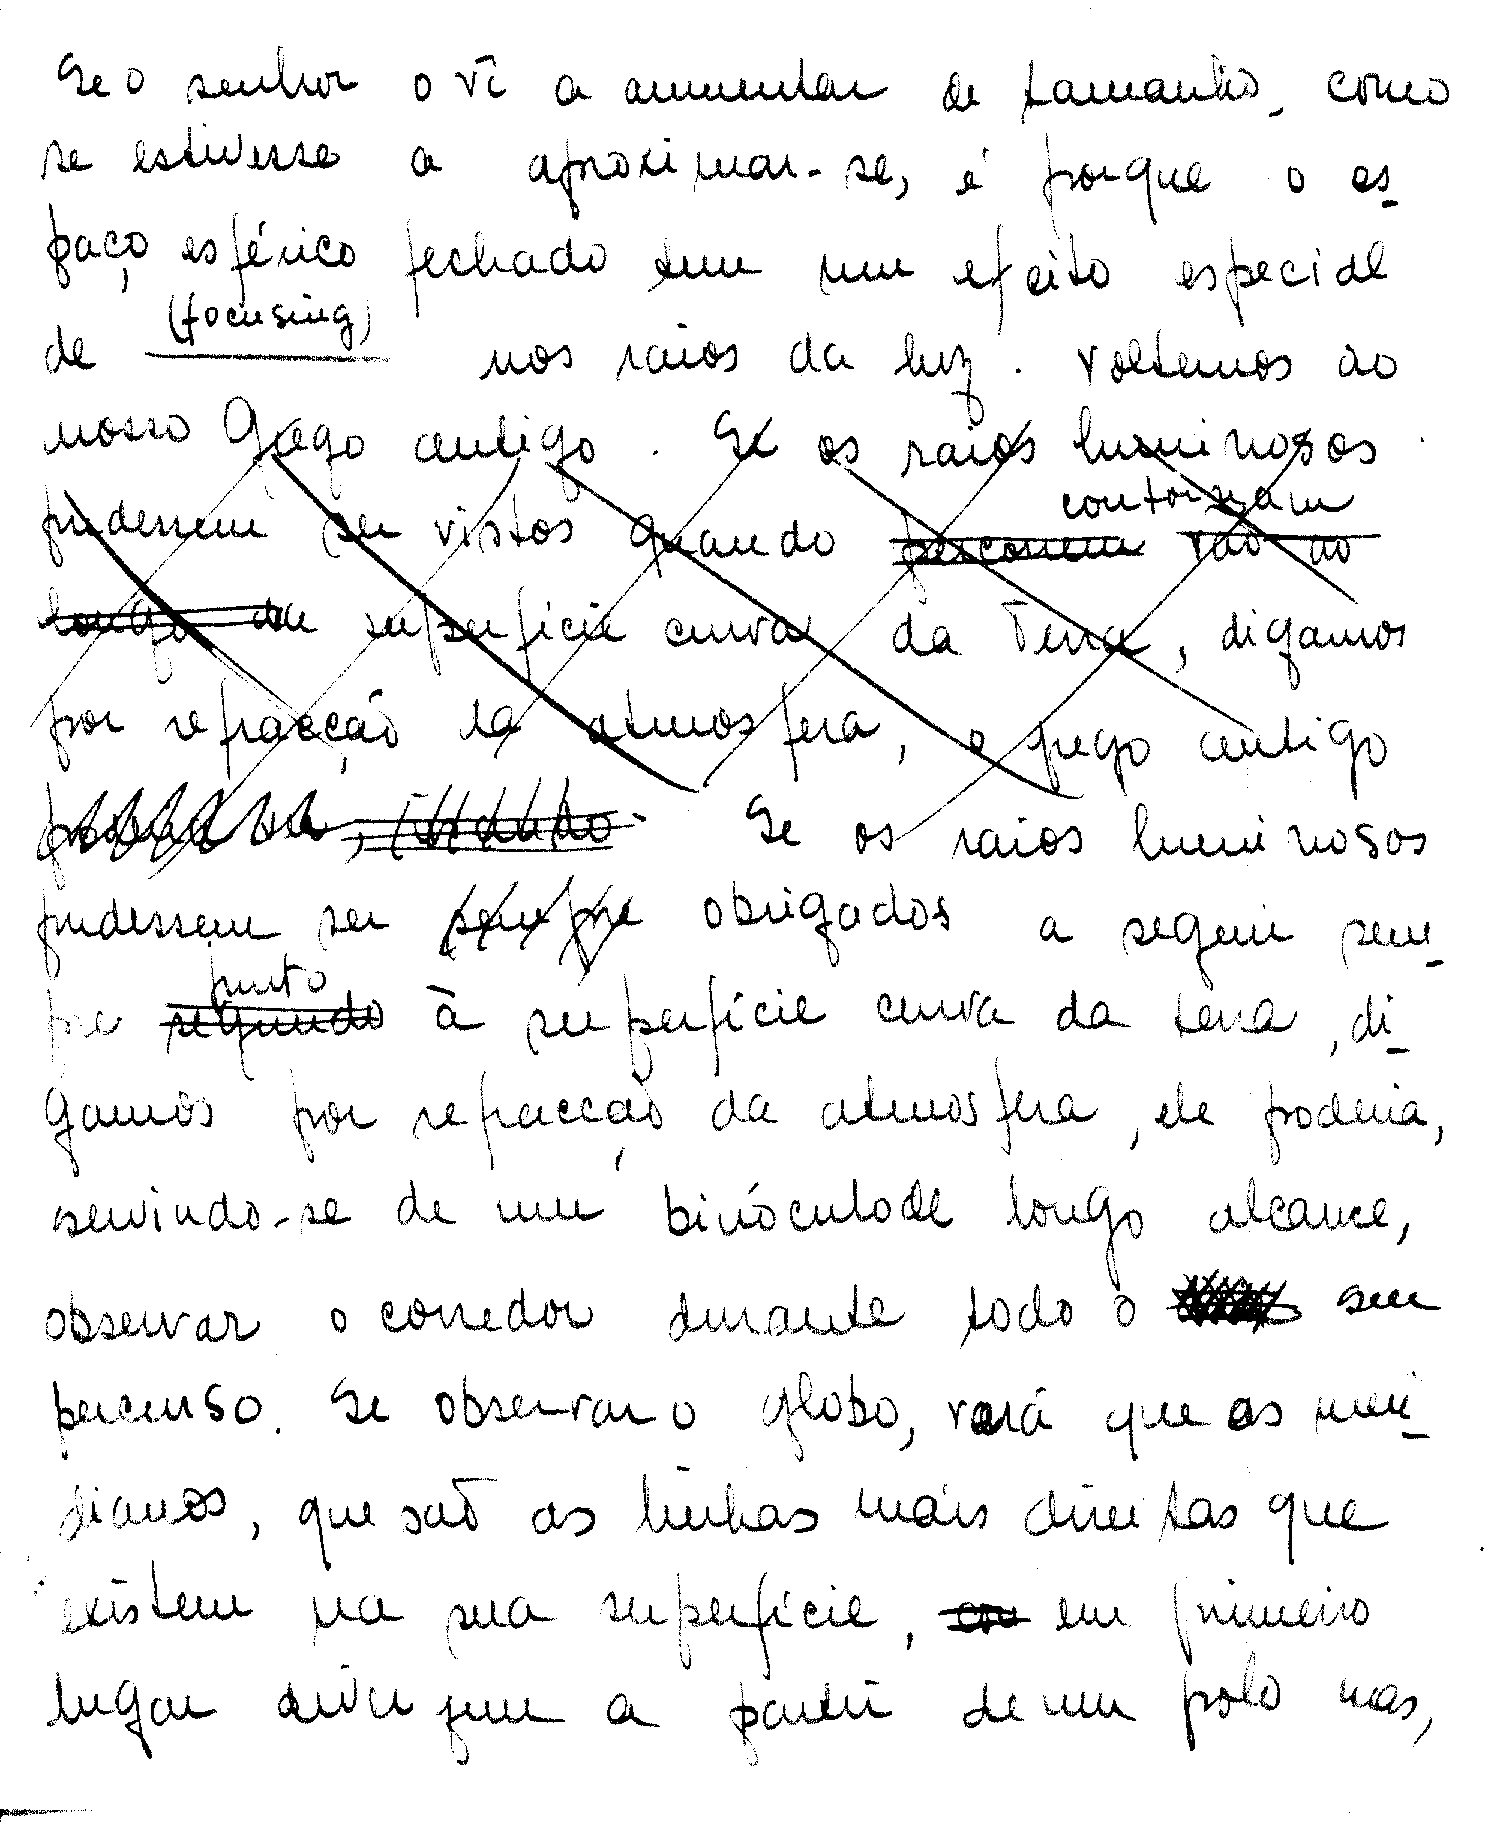 Se o senhor o vi a aumentar de tamanho, como
se estivesse a aproximar-se, é porque o es-
paço esférico fechado tem um efeito especial
de (focusing) nos raios da luz. Voltemos ao
nosso Grego antigo. Se os raios luminosos
pudessem ser vistos quando percorrem vão ao
contornam
longo da superfície curva da Terra, digamos
por refracção da atmosfera, o grego antigo
Se os raios luminosos
pudessem ser sempre obrigados a seguir sem-
junto
pre segundo à superfície curva da terra, di-
gamos por refracção da atmosfera, ele poderia,
servindo-se de um binóculo de longo alcance,
observar o corredor durante todo o seu
percurso. Se observar o globo, verá que os meri-
dianos, que são as linhas mais direitas que
existem na sua superfície, com em primeiro
lugar divergem a partir de um polo mas,